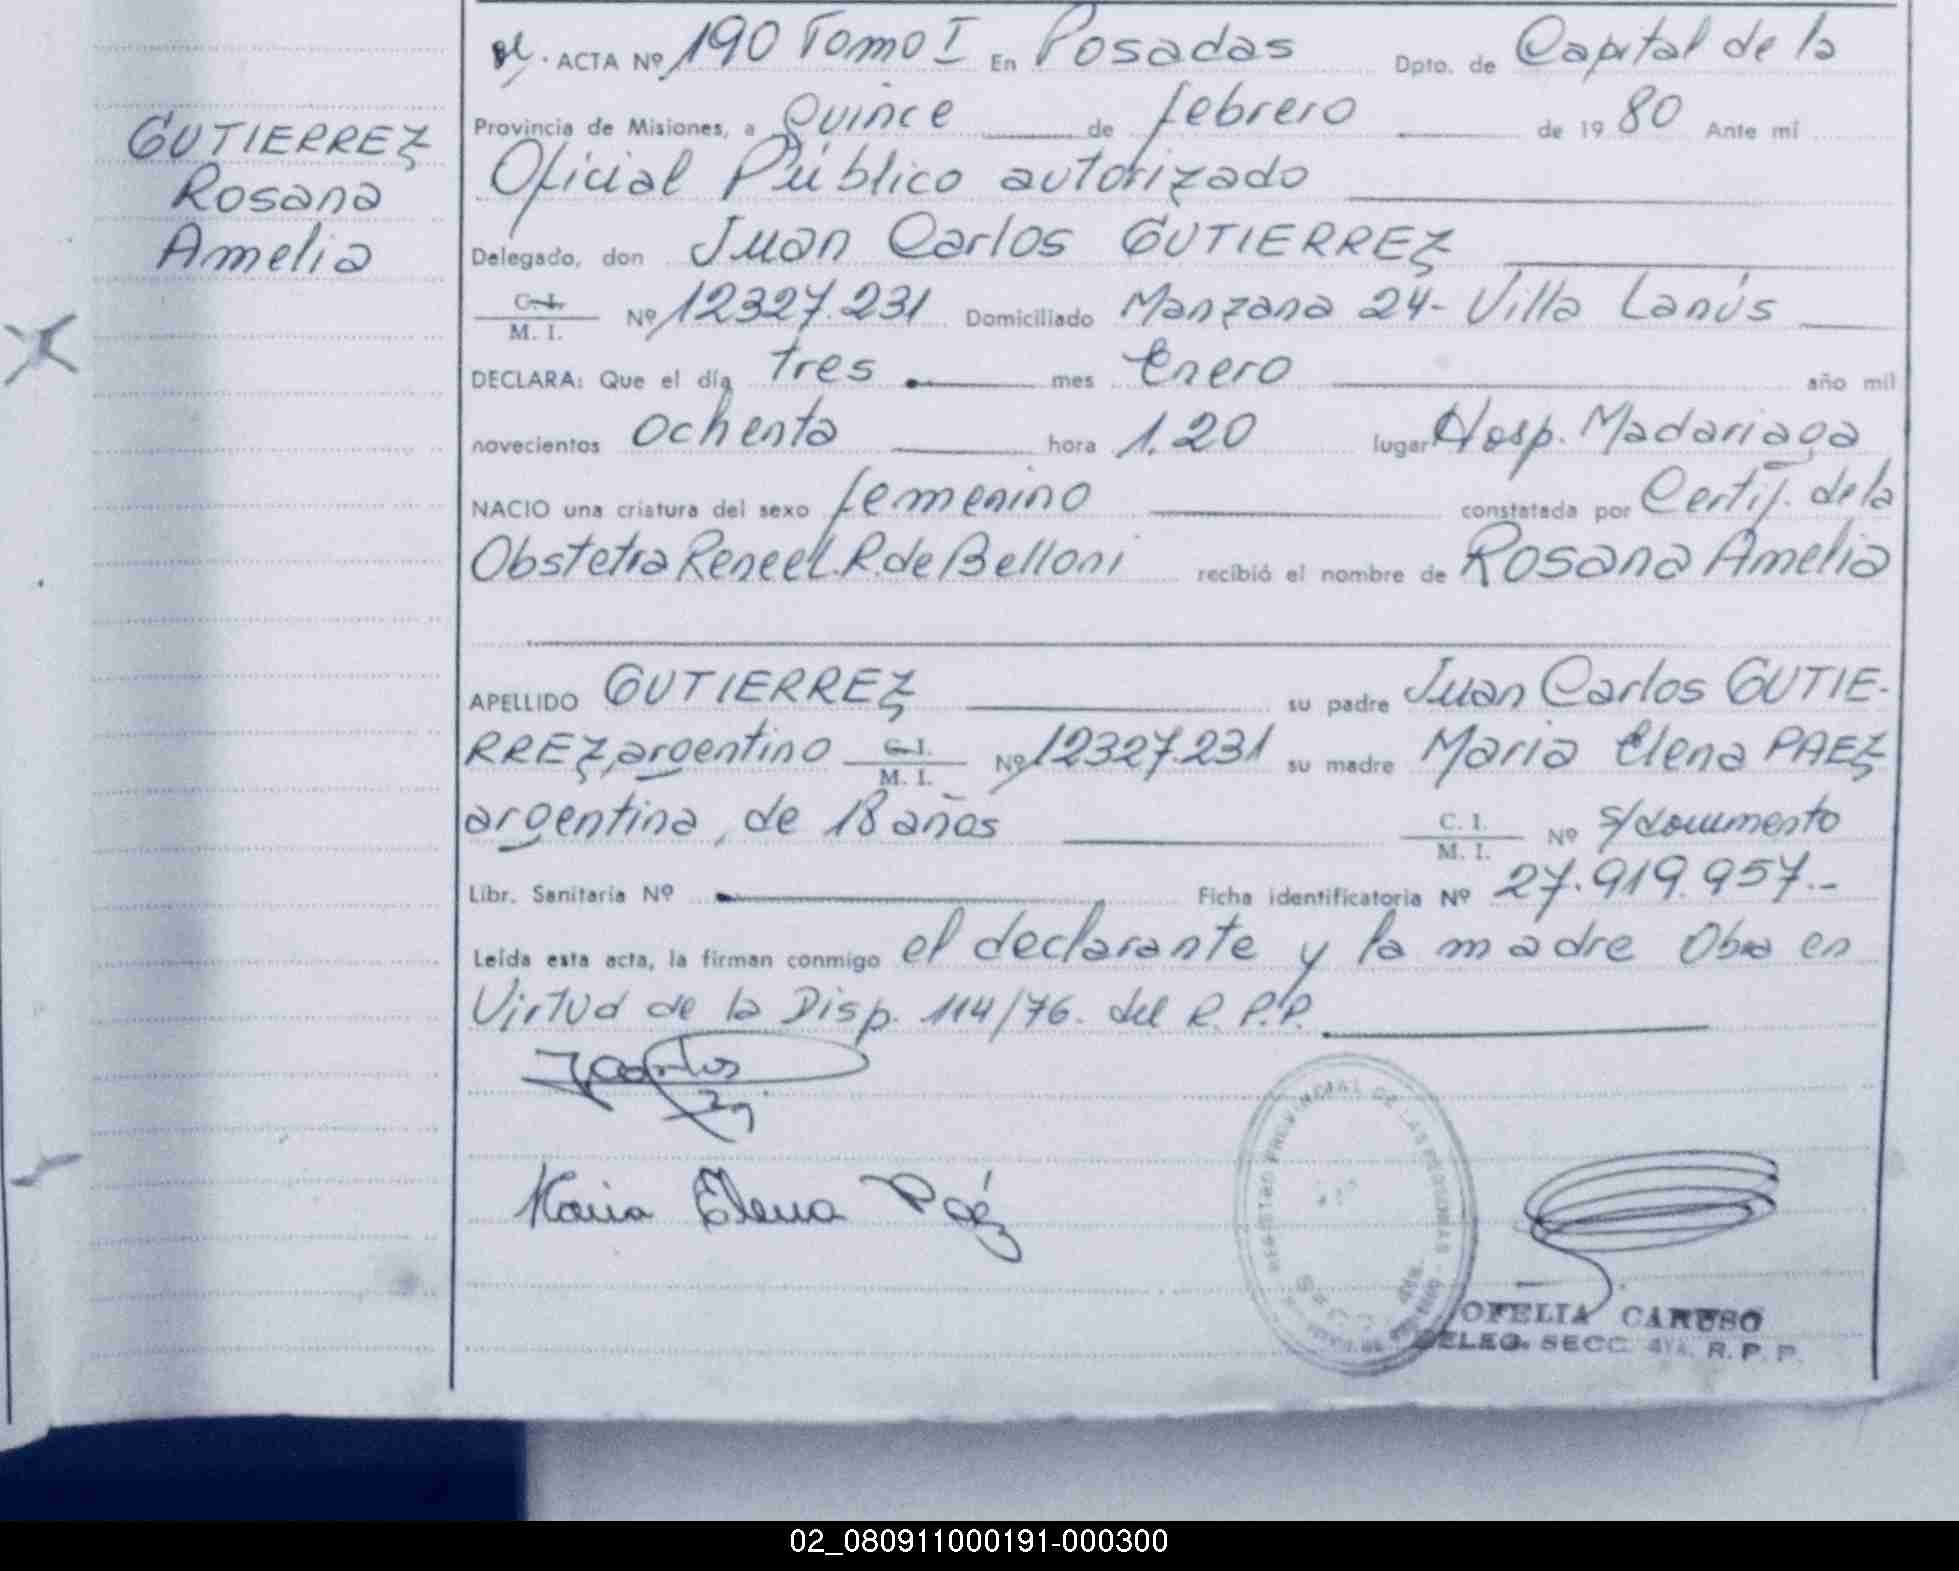 ACTA Nº 190 Tomo I En Posadas Dpto. de Capital de la
GUTIERREZ
Rosana
Amelia
Provincia de Misiones, a Quince de febrero de 19 80 Ante mí
Oficial Público autorizado
Delegado, don Juan Carlos GUTIERREZ
C. I.
M. I. Nº 12327.231 Domiciliado Manzana 24- Villa Lanús
DECLARA: Que el día tres mes Enero año mil
novecientos ochenta hora 1.20 lugar Hosp. Madariaga
NACIO una criatura del sexo femenino constatada por Certif. de la
Obstetra Renee L. R. de Belloni recibió el nombre de Rosana Amelia
APELLIDO GUTIERREZ su padre Juan Carlos GUTIE-
RREZ, argentino C. I. M. I. Nº 12327.231 su madre Maria Elena PAEZ
argentina, de 18 años C. I. M. I. Nº s/documento
Libr. Sanitaria Nº Ficha identificatoria Nº 27.919.957.-
Leída esta acta, la firman conmigo el declarante y la madre Obra en
Virtud de la Disp. 114/76. del R. P.P.
JCarlos
Maria Elena Paéz
REGISTRO PROVINCIAL DE LAS PERSONAS
OFELIA CARUSO
DELEG. SECC. 4ta. R. P. P.
02_080911000191-000300